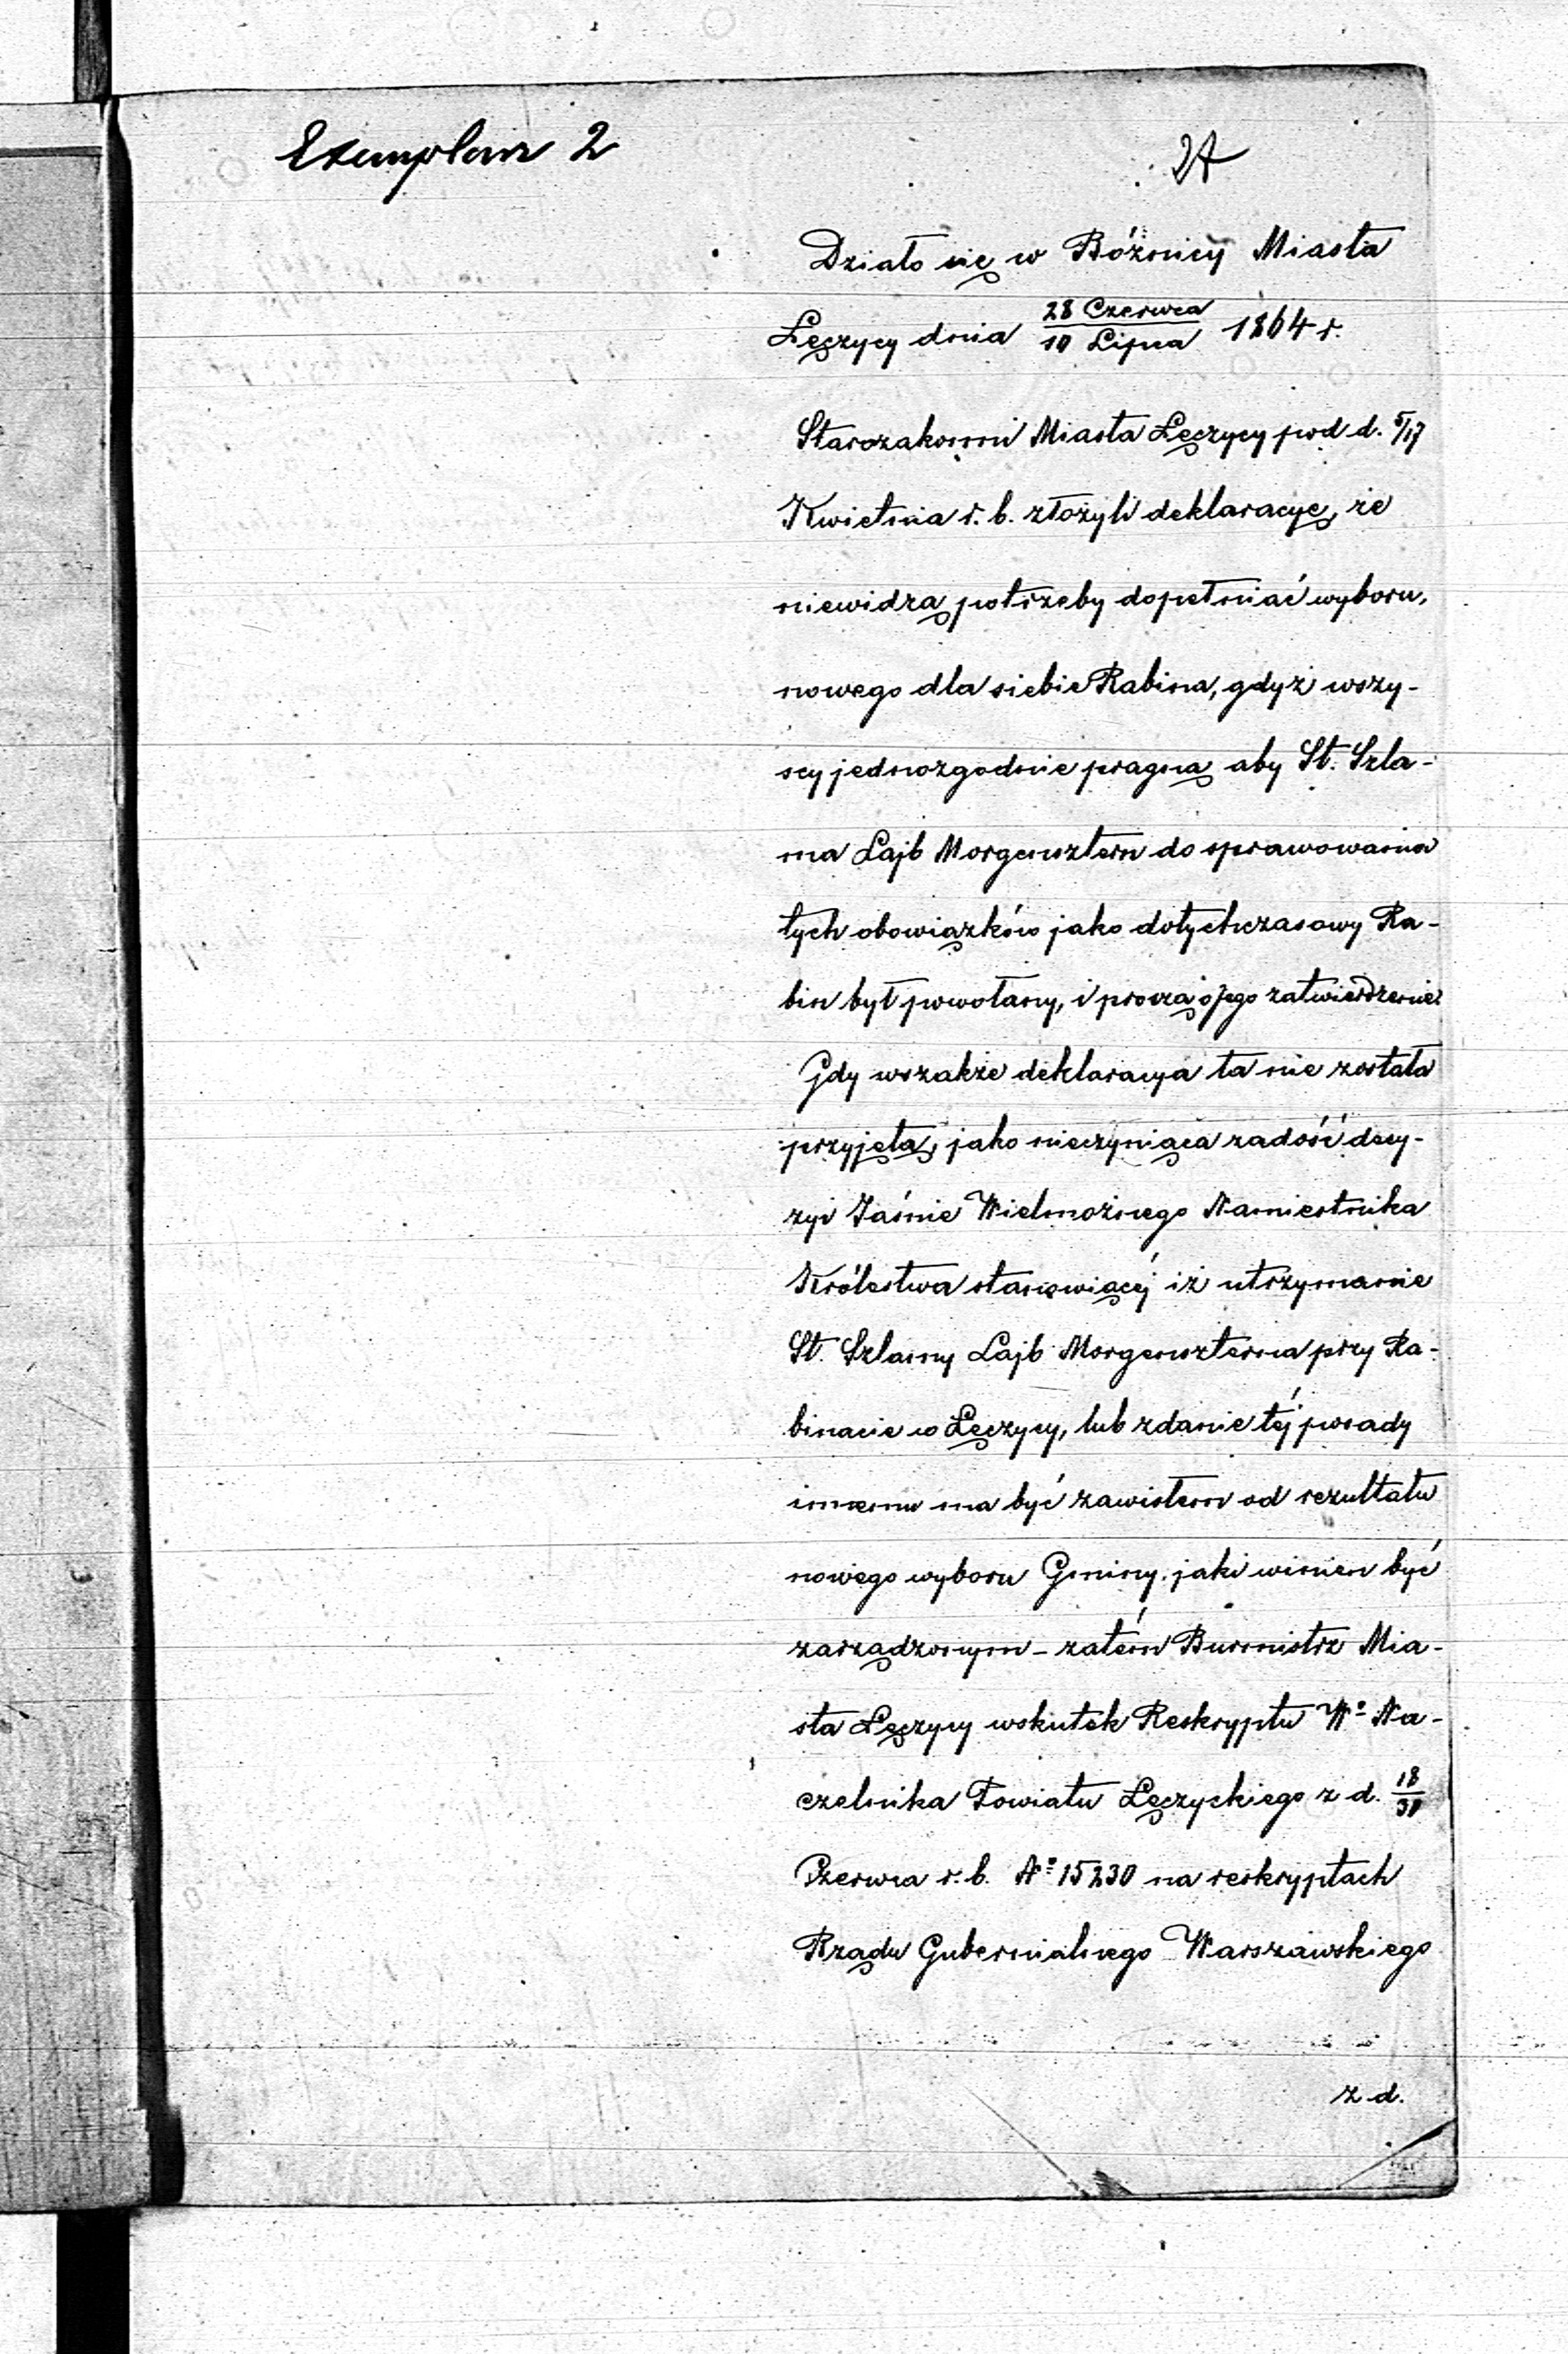 Exemplarz 2
27
Działo się w Bóżnicy Miasta
Łęczycy dnia 28 Czerwca / 10 Lipca 1864 r.
Starozakonni Miasta Łęczycy pod d. 5/17
Kwietnia r. b. złożyli deklaracyę, że
niewidzą potrzeby dopełniać wyboru,
nowego dla siebie Rabina, gdyż wszy-
scy jednozgodnie pragną aby St. Szla-
ma Lajb Morgensztern do sprawowania
tych obowiązków jako dotychczasowy Ra-
bin był powołany, i proszą o jego zatwierdzenie
Gdy wszakże deklaracya ta nie została
przyjętą, jako nieczyniąca zadość decy-
zyi Jaśnie Wielmożnego Namiestnika
Królestwa stanowiącéj iż utrzymanie
St. Szlamy Lajb Morgenszterna przy Ra-
binacie w Łęczycy, lub zdanie téj posady
innemu ma być zawisłem od rezultatu
nowego wyboru Gminy. jaki winien być
zarządzonym – zatém Burmistrz Mia-
sta Łęczycy wskutek Reskryptu Wº Na-
czelnika Powiatu Łęczyckiego z d. 18/30
Czerwca r. b. Nº 15230 na reskryptach
Rządu Gubernialnego Warszawskiego
z d.